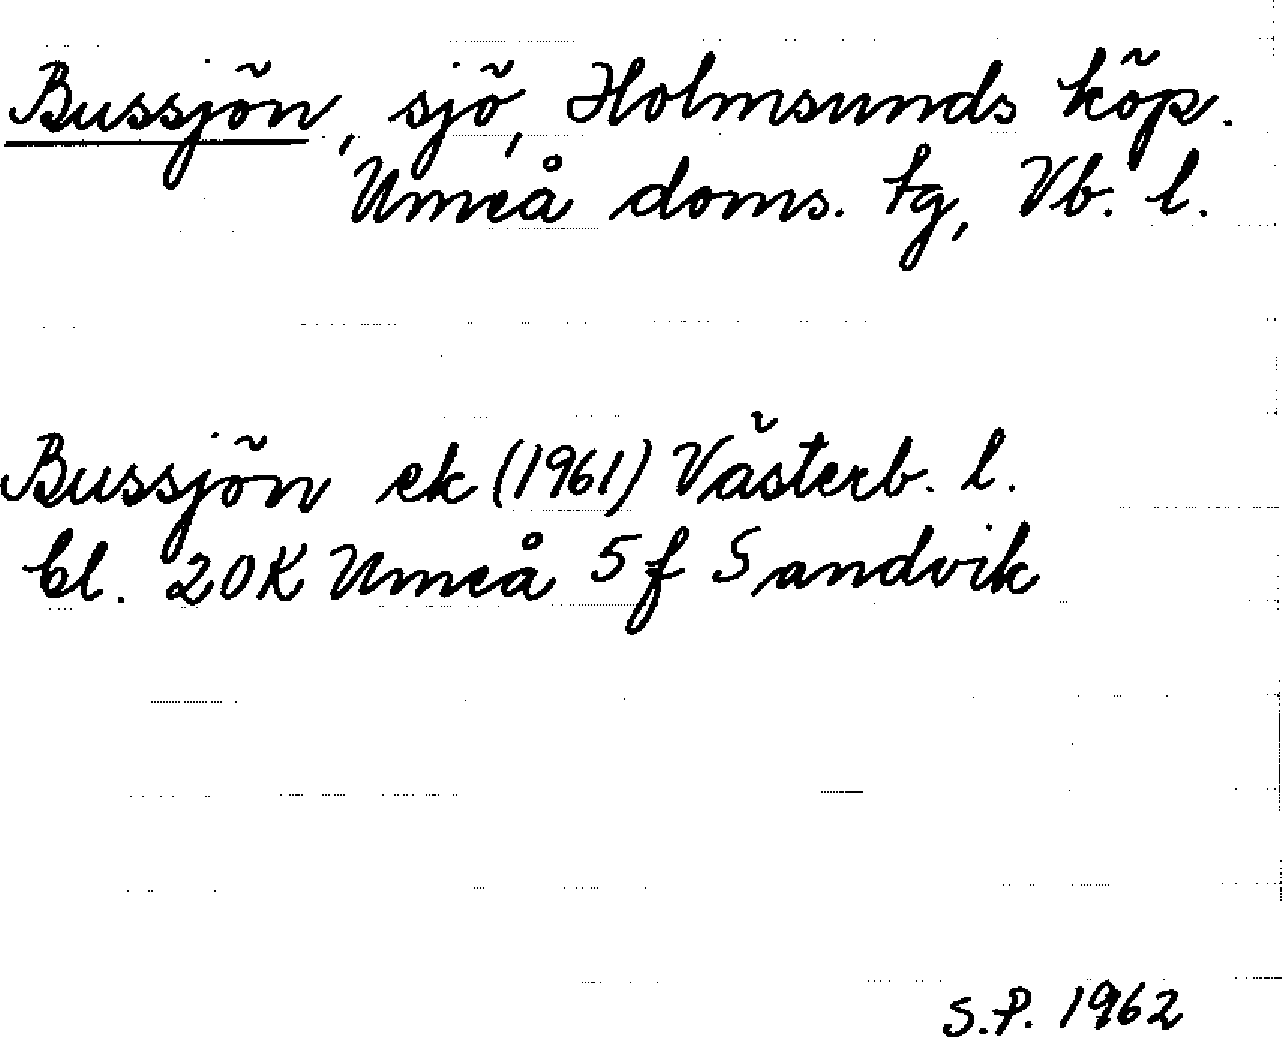 Bussjön, sjö, Holmsunds köp.
Umeå doms. tg, Vb. l.
Bussjön ek (1961) Västerb. l.
bl. 20K Umeå 5f Sandvik
S.P. 1962